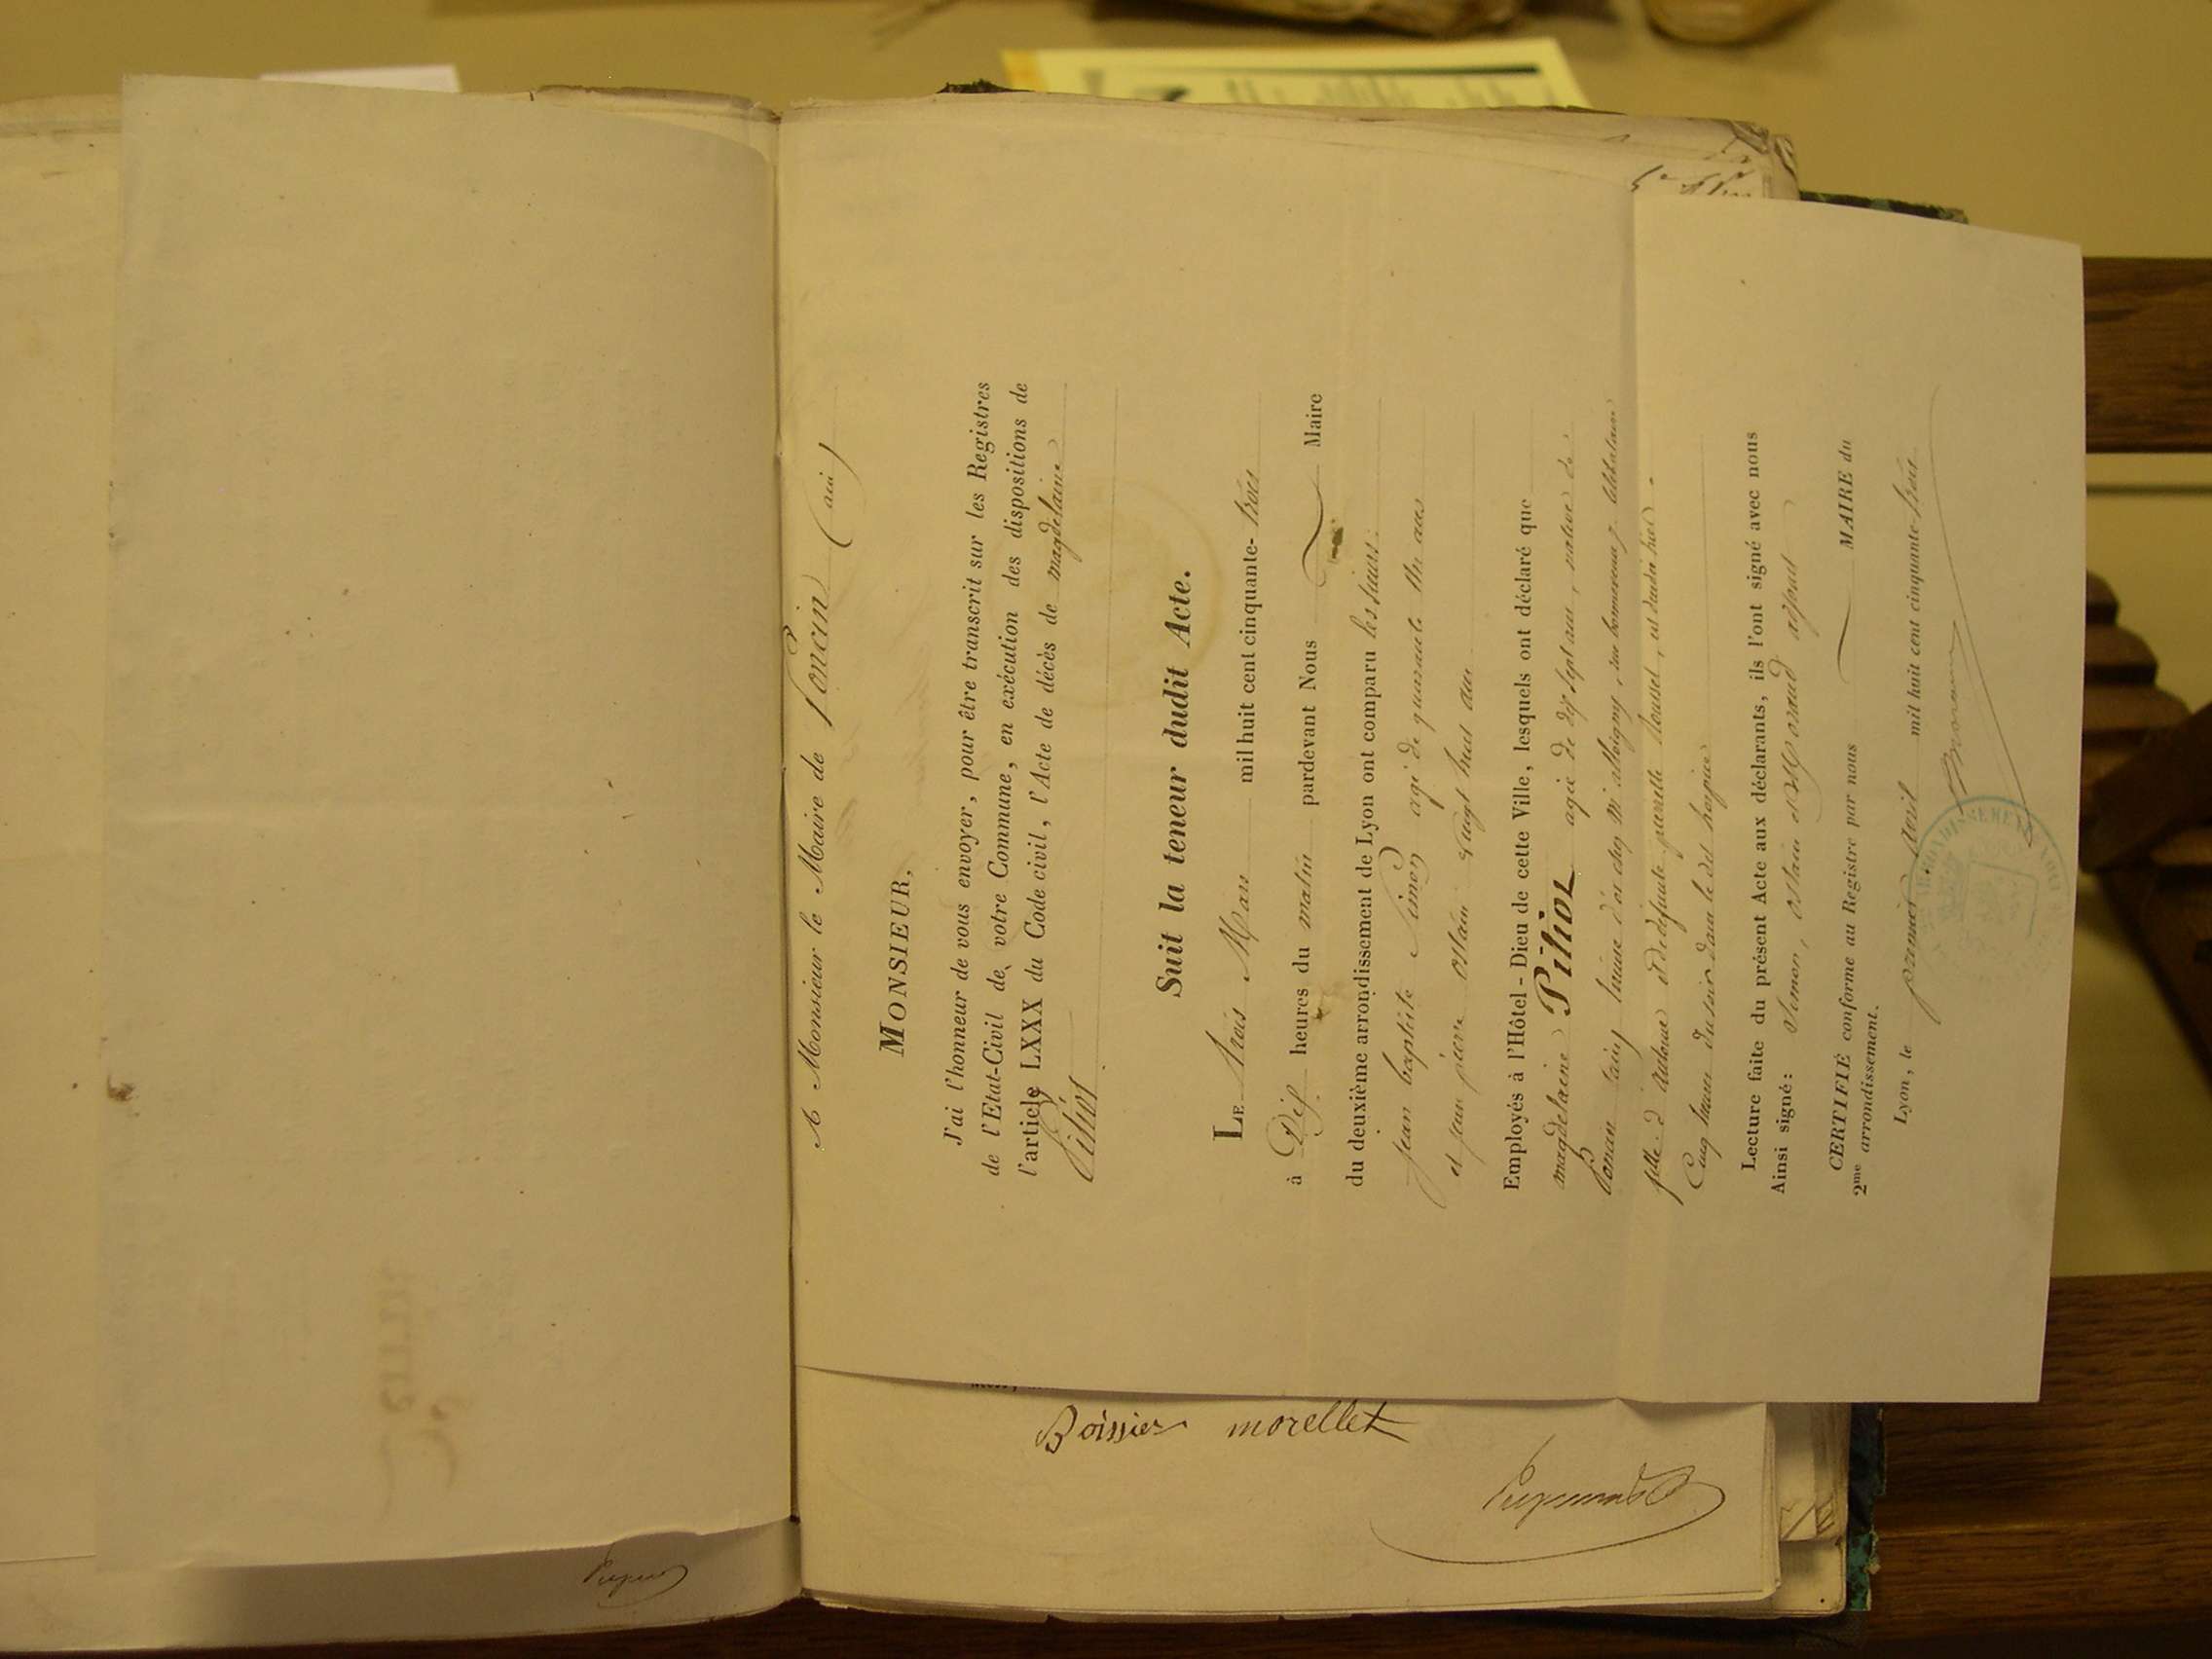 A Monsieur le Maire de Poncin (ain)
MONSIEUR,
J'ai l'honneur de vous envoyer, pour être transcrit sur les Registres
de l'Etat-Civil de votre Commune, en exécution des dispositions de
l'article LXXX du Code civil, l'Acte de décès de magdelaine
Piliot
Suit la teneur dudit Acte.
LE trois Mars mil huit cent cinquante-trois
à Dix heures du matin pardevant Nous Maire
du deuxième arrondissement de Lyon ont comparu les sieurs:
jean baptiste Simon agé de quarante un ans
et jean pierre ostain vingt huit ans
Employés à l'Hôtel-Dieu de cette Ville, lesquels ont déclaré que
magdelaine Piliot agée de dix sept ans, native de
Poncin (ain)
fille d' antoine et de défunte
Cinq heures du soir dans le dit hospice
Lecture faite du présent Acte aux déclarants, ils l'ont signé avec nous
Ainsi signé: Simon, ostain
CERTIFIÉ conforme au Registre par nous MAIRE du
2me arrondissement.
Lyon, le premier avril mil huit cent cinquante-trois
Boissier morellet